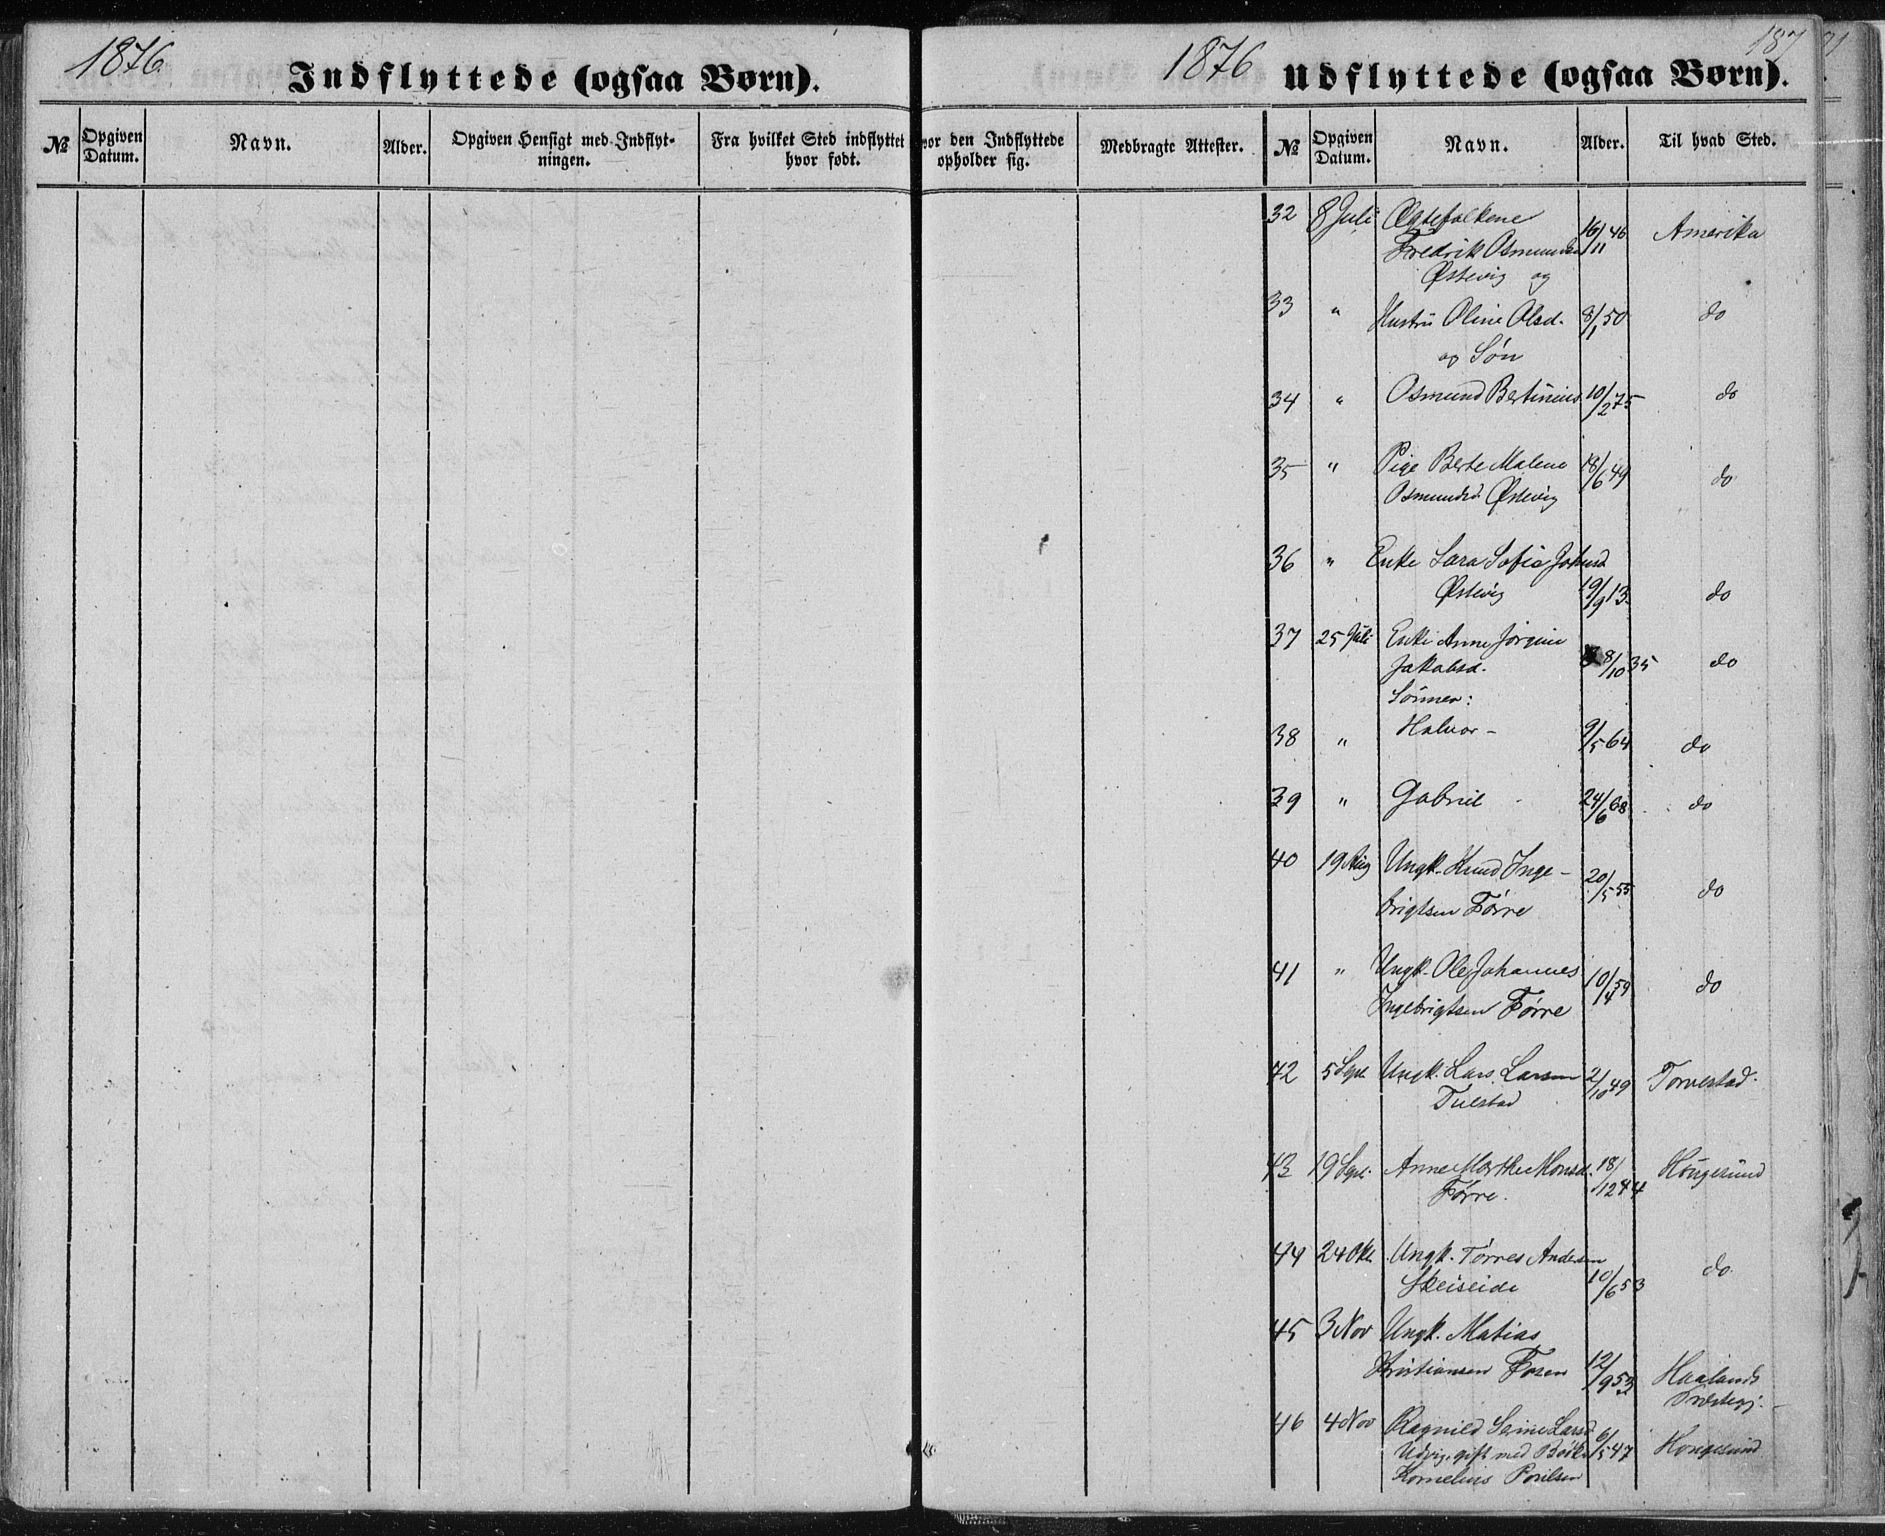 1876
Indflyttede (ogsaa Børn).
№ Opgiven Datum. Navn. Alder. Opgiven Hensigt med Indflyt-
ningen. Fra hvilket Sted indflyttet
hvor født.
1876 187
Udflyttede (ogsaa Børn).
vor den Indflyttede
opholder sig. Medbragte Attester. № Opgiven Datum. Navn. Alder. Til hvad Sted.
32 8 Juli Ægtefolkene
Fredrik Osmundsen 16/11 46 Amerika
Østevig og
33 " Hustru Oline Olsd. 8/1 50 do
og Søn
34 " Osmund Bertinius 10/2 75 do
35 " Pige Berte Malene 18/6 49 do
Osmundsd. Østevig
36 " Enke Sara Sofia Johnsd
Østevig 19/9 13 do
37 25 Juli Enke Anne Jørgine
Jakobsd. 8/10 35 do
Sønner:
38 " Halvor - 9/5 64 do
39 " Gabriel 24/6 68 do
40 19 Aug Ungk. Knud Inge-
brigtsen Førre 20/5 55 do
41 " Ungk. Ole Johannes
Ingebrigtsen Førre 10/4 59 do
42 5 Sept. Ungk. Lars Larsen 2/10 49 Torvestad.
43 19 Sept. Anne Marthe Monsd. 18/12 44 Haugesund
Førre.
44 24 Okt Ungk. Tørres Andersen
Skeiseide 10/6 53 do
45 3 Nov Ungk. Matias
Kristiansen Fosen 12/9 53 Haalands
Præstegj.
46 4 Nov Ragnild Serine Larsd 6/5 47 Haugesund
Udvig, gift med
Kornelius Poulsen